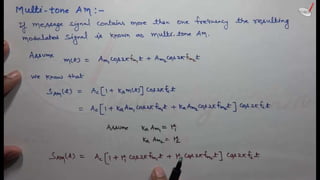 Multi-tone AM:-
If message signal contains more than one frequency the resulting
modulated signal is known as multi-tone AM.
Assume m(t) = Am₁ cos2πfm₁t + Am₂ cos2πfm₂t
We know that
SAM(t) = Ac[1 + Ka m(t)] cos2πfct
= Ac[1 + Ka Am₁ cos2πfm₁t + Ka Am₂ cos2πfm₂t] cos2πfct
Assume Ka Am₁ = μ₁
Ka Am₂ = μ₂
SAM(t) = Ac[1 + μ₁ cos2πfm₁t + μ₂ cos2πfm₂t] cos2πfct